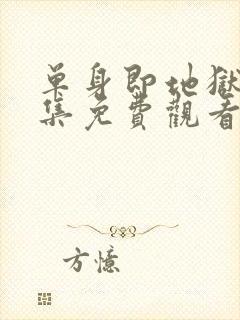 单身即地獄
集免費觀看
方憶